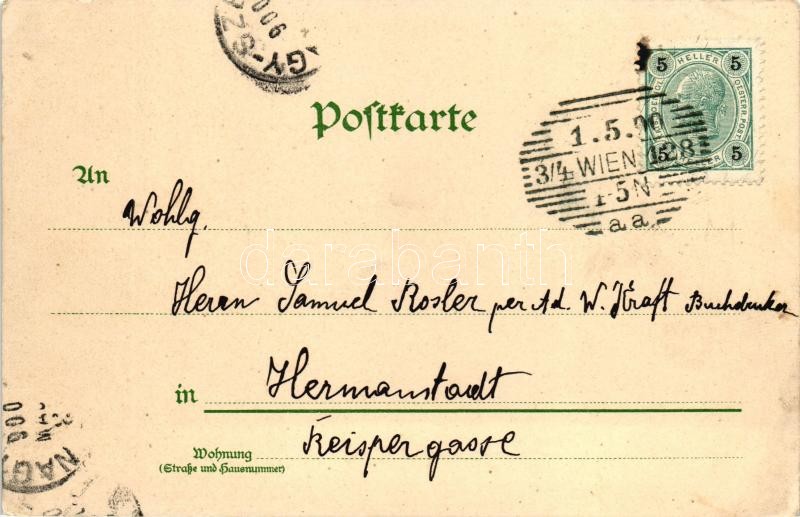 GY-SZ
900
Postkarte
5 HELLER 5
OESTERR. POST
5 5
1.5.00
3/4 WIEN 128
1-5N
a a
An
Wohlg.
darabanth
Herrn Samuel Rosler per Ad. W. Kraft Buchdruker
in Hermanstadt
Wohnung
(Straße und Hausnummer)
Reispergasse
900
NAG